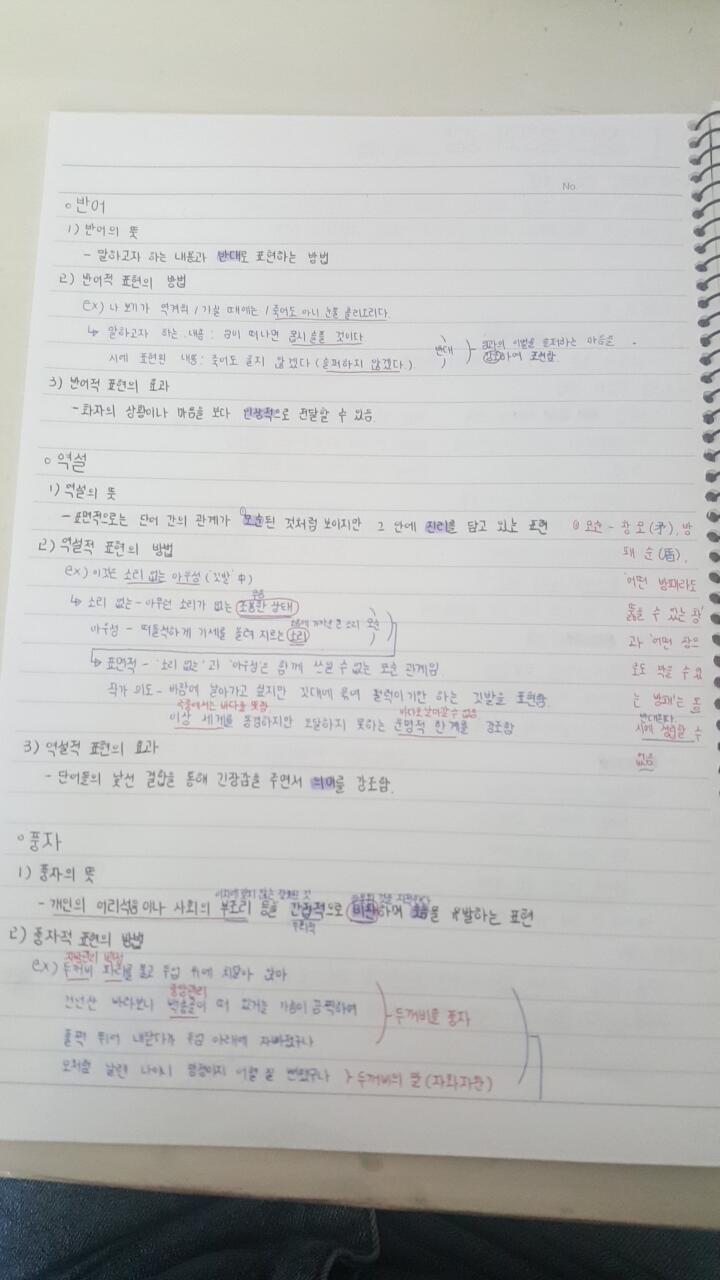 No.
◦반어
1) 반어의 뜻
- 말하고자 하는 내용과 반대로 표현하는 방법
2) 반어적 표현의 방법
ex) 나 보기가 역겨워 / 가실 때에는 / 죽어도 아니 눈물 흘리오리다.
↳ 말하고자 하는 내용 : 임이 떠나면 몹시 슬플 것이다
시에 표현된 내용 : 죽어도 울지 않겠다 (슬퍼하지 않겠다.)
반대
이별을 슬퍼하는 마음을
강조하여 표현함
3) 반어적 표현의 효과
- 화자의 상황이나 마음을 보다 인상적으로 전달할 수 있음.
◦역설
1) 역설의 뜻
- 표면적으로는 단어 간의 관계가 모순된 것처럼 보이지만 그 안에 진리를 담고 있는 표현
모순 - 창 모(矛), 방
패 순(盾),
'어떤 방패라도
뚫을 수 있는 창'
과 '어떤 창으
로도 막을 수 있
는 방패'는 동
시에 성립할 수
없음
2) 역설적 표현의 방법
ex) 이것은 소리 없는 아우성 ('깃발' 中)
↳ 소리 없는 - 아무런 소리가 없는 조용한 상태
아우성 - 떠들썩하게 기세를 올려 지르는 소리
모순
↳ 표면적 - '소리 없는'과 '아우성'은 함께 쓰일 수 없는 모순 관계임
작가 의도 - 바람에 날아가고 싶지만 깃대에 묶여 펄럭이기만 하는 깃발을 표현함.
이상 세계를 동경하지만 도달하지 못하는 운명적 한계를 강조함
3) 역설적 표현의 효과
- 단어들의 낯선 결합을 통해 긴장감을 주면서 의미를 강조함.
◦풍자
1) 풍자의 뜻
- 개인의 어리석음이나 사회의 부조리 등을 간접적으로 비판하며 웃음을 유발하는 표현
2) 풍자적 표현의 방법
ex) 두꺼비 파리를 물고 두엄 위에 치달아 앉아
중앙관리
건넌산 바라보니 백송골이 떠 있거늘 가슴이 끔찍하여
풀떡 뛰어 내닫다가 두엄 아래에 자빠졌구나
두꺼비를 풍자
모처럼 날랜 나이시 망정이지 어혈 질 뻔했구나
두꺼비의 말 (자화자찬)